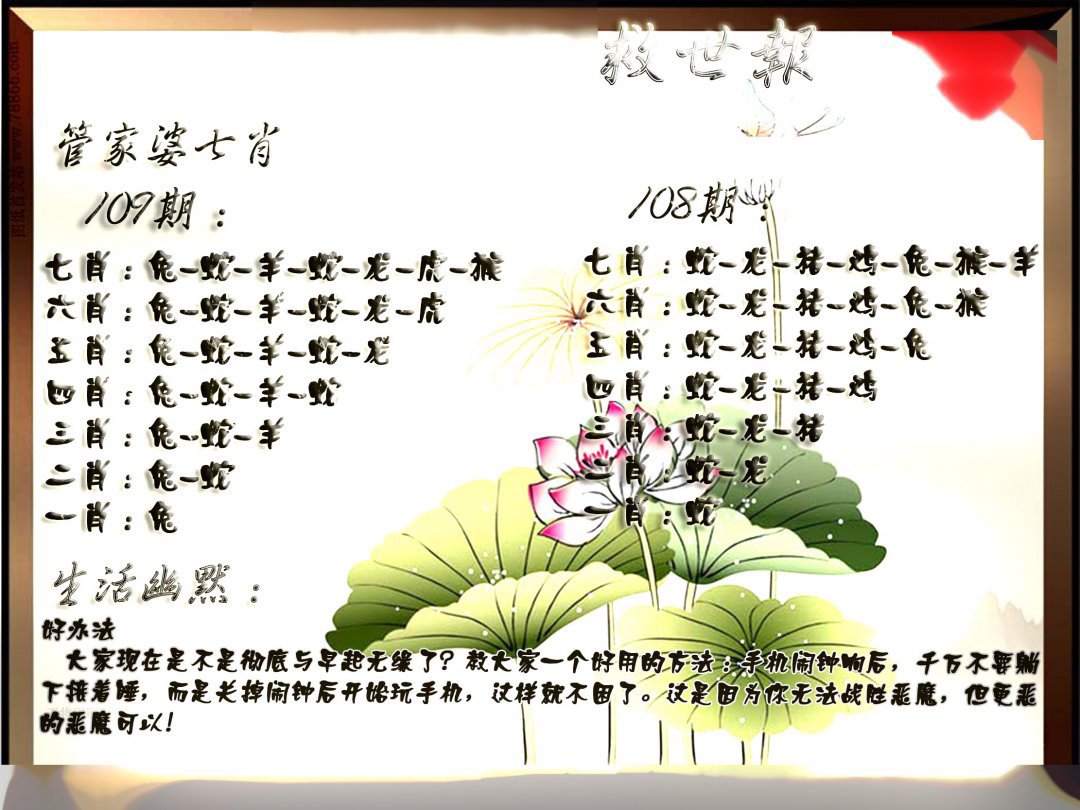 救世報
管家婆七肖
109期：
七肖：兔-蛇-羊-蛇-龙-虎-猴
六肖：兔-蛇-羊-蛇-龙-虎
五肖：兔-蛇-羊-蛇-龙
四肖：兔-蛇-羊-蛇
三肖：兔-蛇-羊
二肖：兔-蛇
一肖：兔
108期：
七肖：蛇-龙-猪-鸡-兔-猴-羊
六肖：蛇-龙-猪-鸡-兔-猴
五肖：蛇-龙-猪-鸡-兔
四肖：蛇-龙-猪-鸡
三肖：蛇-龙-猪
二肖：蛇-龙
一肖：蛇
生活幽默：
好办法
大家现在是不是彻底与早起无缘了？教大家一个好用的方法：手机闹钟响后，千万不要躺
下接着睡，而是关掉闹钟后开始玩手机，这样就不困了。这是因为你无法战胜恶魔，但更恶
的恶魔可以！
图纸首发站 www.78866.com